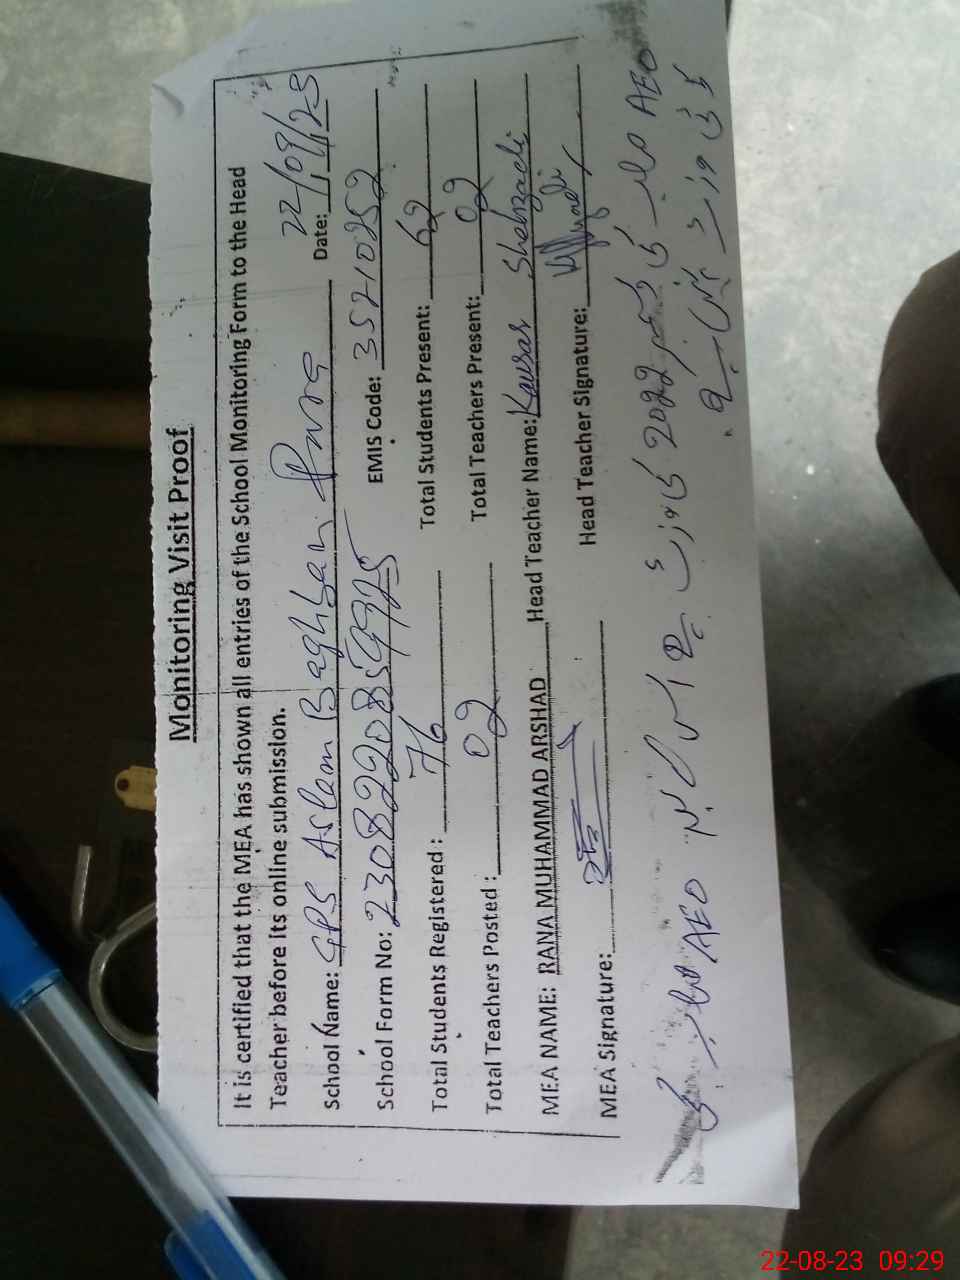 Monitoring Visit Proof
It is certified that the MEA has shown all entries of the School Monitoring Form to the Head
Teacher before its online submission.
School Name: GPS Aslam Baghban Pura Date: 22/08/23
School Form No: 2308220859725 EMIS Code: 35210252
Total Students Registered : 76 Total Students Present: 62
Total Teachers Posted : 02 Total Teachers Present: 02
MEA NAME: RANA MUHAMMAD ARSHAD Head Teacher Name: Kausar Shahzadi
MEA Signature: Head Teacher Signature:
AEO 2022 AEO
22-08-23 09:29